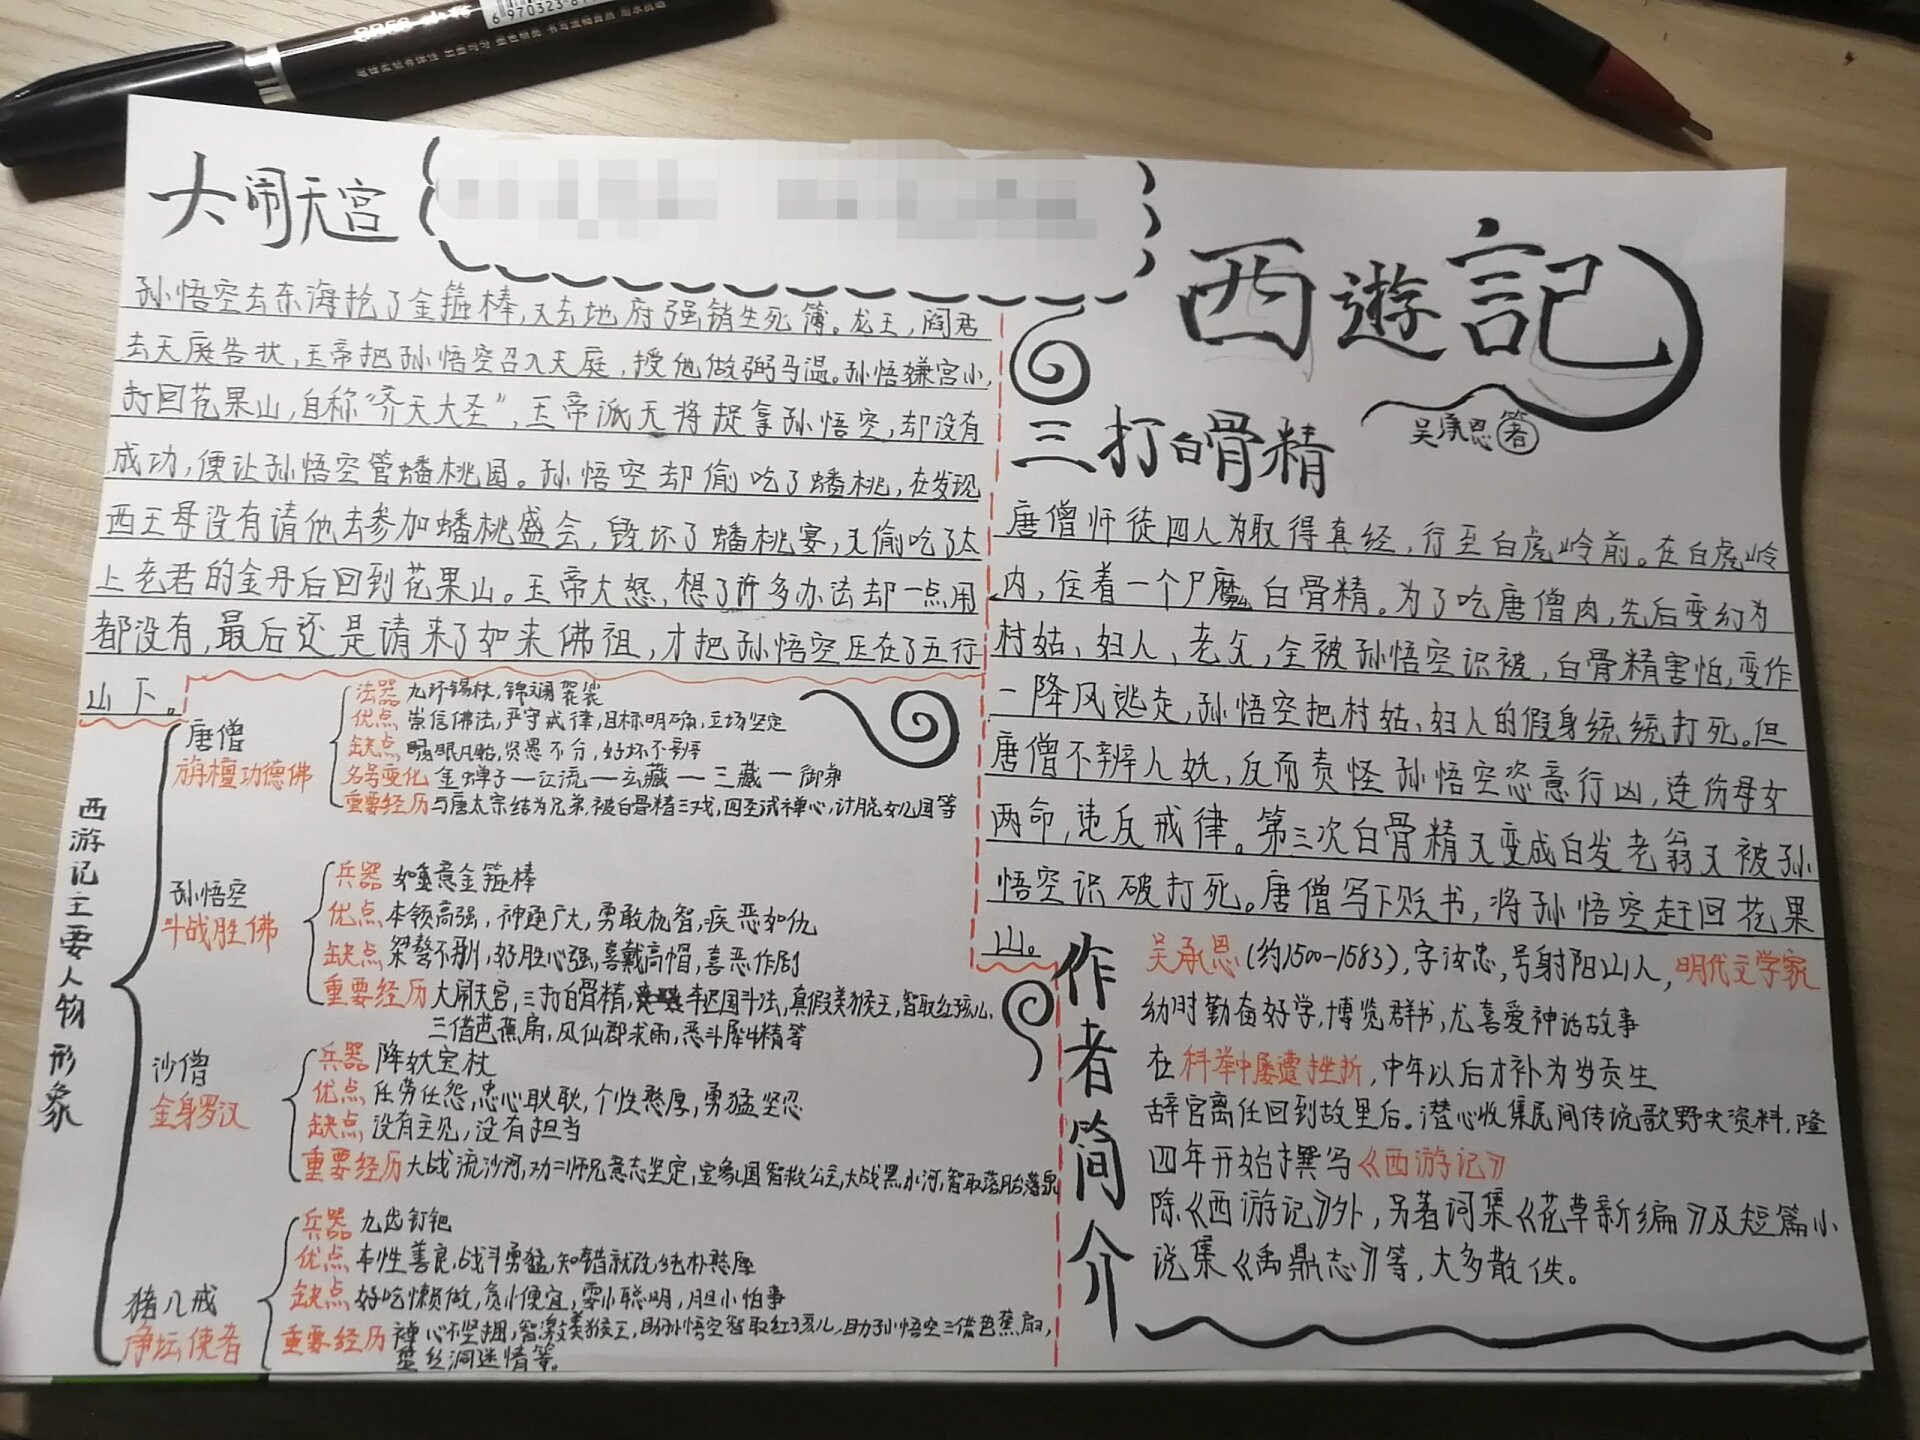 大闹天宫
孙悟空去东海抢了金箍棒,又去地府强销生死簿。龙王,阎君
去天庭告状,玉帝把孙悟空召入天庭,授他做弼马温。孙悟嫌官小,
打回花果山,自称“齐天大圣”,玉帝派天将捉拿孙悟空,却没有
成功,便让孙悟空管蟠桃园。孙悟空却偷吃了蟠桃,在发现
西王母没有请他去参加蟠桃盛会,毁坏了蟠桃宴,又偷吃了太
上老君的金丹后回到花果山。玉帝大怒,想了许多办法却一点用
都没有,最后还是请来了如来佛祖,才把孙悟空压在了五行
山下。
西遊記
吴承恩著
三打白骨精
唐僧师徒四人为取得真经,行至白虎岭前。在白虎岭
内,住着一个尸魔白骨精。为了吃唐僧肉,先后变幻为
村姑、妇人、老父,全被孙悟空识被,白骨精害怕,变作
一降风逃走,孙悟空把村姑、妇人的假身统统打死。但
唐僧不辨人妖,反而责怪孙悟空恣意行凶,连伤母女
两命,违反戒律。第三次白骨精又变成白发老翁又被孙
悟空识破打死。唐僧写下贬书,将孙悟空赶回花果
山。
西游记主要人物形象
唐僧
旃檀功德佛
法器 九环锡杖,锦斓袈裟
优点 崇信佛法,严守戒律,目标明确,立场坚定
缺点 眼凡胎,贤愚不分,好坏不辨
名号变化 金蝉子—江流—玄藏—三藏—御弟
重要经历 与唐太宗结为兄弟,被白骨精三戏,四圣试禅心,计脱女儿国等
孙悟空
斗战胜佛
兵器 如意金箍棒
优点 本领高强,神通广大,勇敢机智,疾恶如仇
缺点 桀骜不驯,好胜心强,喜戴高帽,喜恶作剧
重要经历 大闹天宫,三打白骨精,车迟国斗法,真假美猴王,智取红孩儿,
三借芭蕉扇,风仙郡求雨,恶斗犀牛精等
沙僧
金身罗汉
兵器 降妖宝杖
优点 任劳任怨,忠心耿耿,个性憨厚,勇猛坚忍
缺点 没有主见,没有担当
重要经历 大战流沙河,劝二师兄意志坚定,宝象国智救公主,大战黑水河,智取落胎泉
猪八戒
净坛使者
兵器 九齿钉钯
优点 本性善良,战斗勇猛,知错就改,纯朴憨厚
缺点 好吃懒做,贪小便宜,耍小聪明,胆小怕事
重要经历 禅心不坚捆,智激美猴王,助孙悟空智取红孩儿,助孙悟空三借芭蕉扇,
丝洞迷情等。
作者简介
吴承恩(约1500-1583),字汝忠,号射阳山人,明代文学家
幼时勤奋好学,博览群书,尤喜爱神话故事
在科举中屡遭挫折,中年以后才补为岁贡生
辞官离任回到故里后。潜心收集民间传说歌野史资料,隆
四年开始撰写《西游记》
除《西游记》外,另著词集《花草新编》及短篇小
说集《禹鼎志》等,大多散佚。